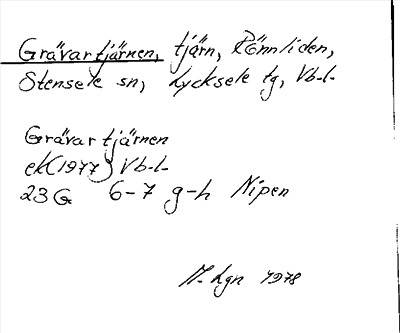 Grävartjärnen, tjärn, Rönnliden,
Stensele sn, Lycksele tg, Vb-l.
Grävartjärnen
ek(1977) Vb-l-
23G 6-7 g-h Nipen
Lgn 1978